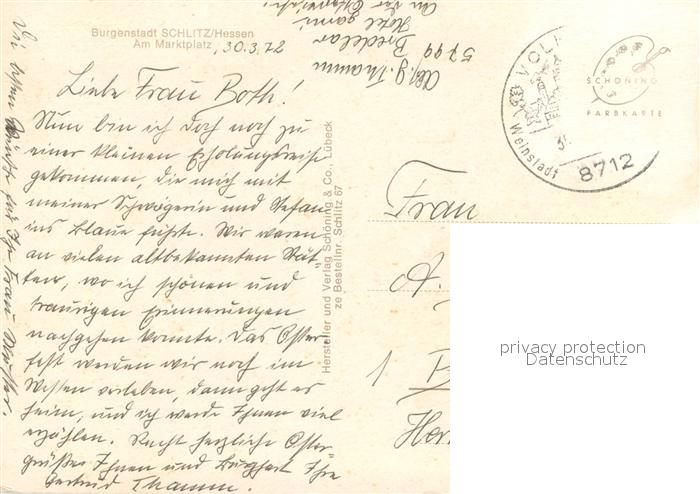 Burgenstadt SCHLITZ/Hessen
Am Marktplatz, 30.3.72
Liebe Frau Both!
Nun bin ich doch noch zu
einer kleinen Erholungsreise
gekommen, die mich mit
meiner Schwägerin und Stefan
ins Blaue führte. Wir waren
an vielen altbekannten Stät-
ten, wo ich schönen und
traurigen Erinnerungen
nachgehen konnte. Das Oster-
fest werden wir noch im
Westen verleben, dann geht es
heim, und ich werde Ihnen viel
erzählen. Recht herzliche Oster-
grüße Ihnen und Burghart Ihre
Gertrud Thamm.
Die besten Wünsche für Ihr Frau Mutter.
Abs. G. Thamm
5799 Bredelar
Hotel garni
An der
Hersteller und Verlag Schöning & Co., Lübeck
ze Bestellnr. Schlitz 67
VOL
Weinstadt
8712
SCHÖNING
FARBKARTE
Frau
A.
1 B
Her
privacy protection
Datenschutz